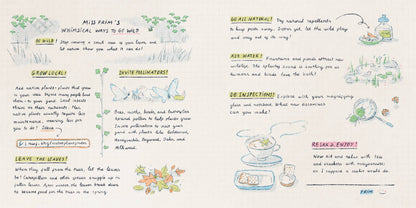 MISS PRIM'S
WHIMSICAL WAYS TO GO WILD
GO WILD!
Stop mowing a small area of your lawn, and
let nature show you what it can do!
GROW LOCAL!
Add native plants - plants that grow
in your area.
to your yard.
them as their
native plants usually require less
maintenance, meaning less for
you to do!
INVITE POLLINATORS!
Bees, moths, birds, and butterflies
spread pollen to help plants grow.
Invite pollinators to visit your
yard with plants like Goldenrod,
Honeysuckle, Dogwood, Oaks, and
Milkweed.
LEAVE THE LEAVES!
When they fall from the trees, let the leaves
be! Caterpillars and other critters snuggle up in
fallen leaves. After winter, the leaves break down
to become food for the trees in the spring.
GO ALL NATURAL!
Try natural repellents
to keep pests away. Even yet, let the wild play
and stay out of its way!
ADD WATER!
Fountains and ponds attract new
wildlife. The splashy sound is soothing for us
humans and birds love the bath!
DO INSPECTIONS!
Explore with your magnifying
glass and notebook. What new discoveries
can you make?
RELAX & ENJOY!
Now sit and relax with tea
and crackers with
as I suppose a critter would do.
PRIM